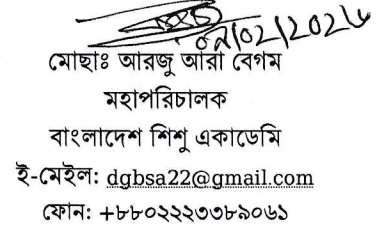 মোছাঃ আরজু আরা বেগম
মহাপরিচালক
বাংলাদেশ শিশু একাডেমি
ই-মেইল: dgbsa22@gmail.com
ফোন: +৮৮০২২২৩৩৮৯০৬১